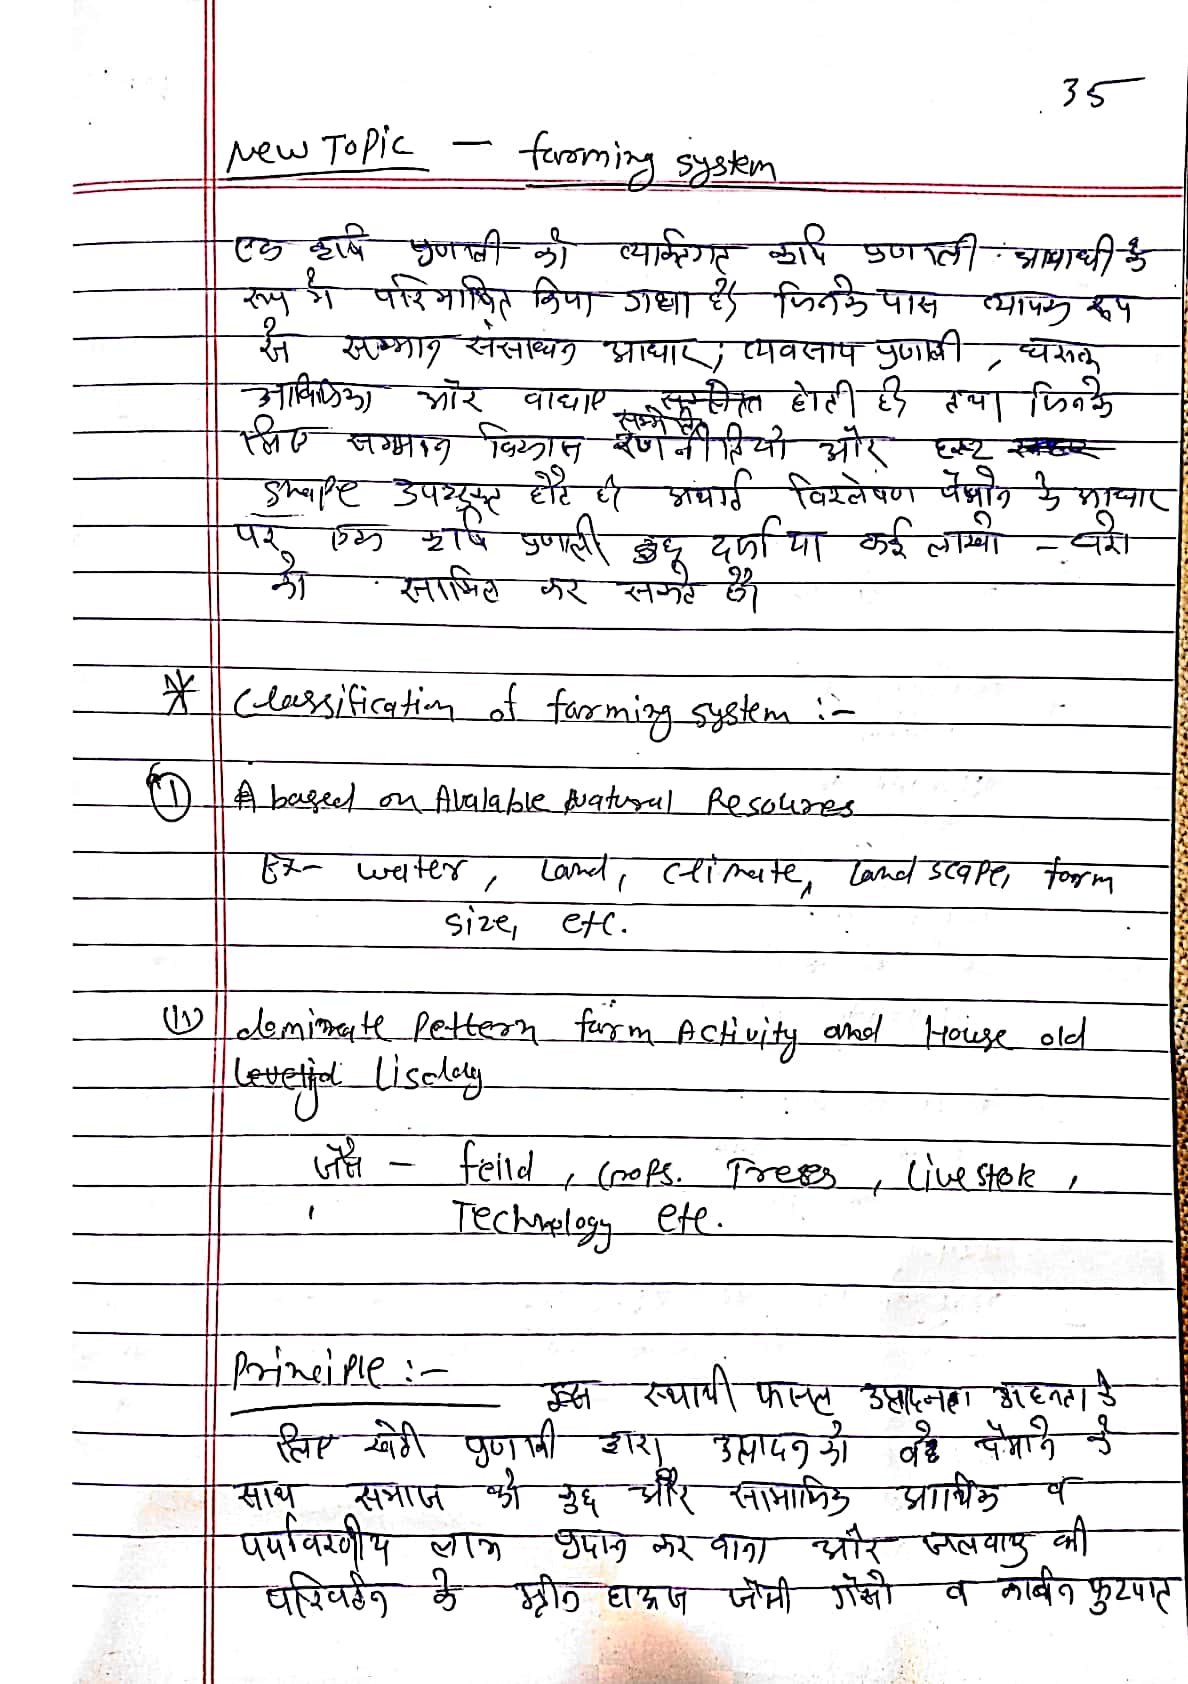 35
New Topic — farming system
एक कृषि प्रणाली को व्यक्तिगत कृषि प्रणाली आबादी के
रूप में परिभाषित किया गया है। जिनके पास व्यापक रूप
से सम्मान संसाधन आधार, व्यवसाय प्रणाली, घरेलू
आजिविका और बाधाए होती है तथा जिनके
सम्मेलित
लिए सम्मान विकास रणनीतियो और
shape उपयुक्त होते है। अर्थात विश्लेषण पैमाने के आधार
पर एक कृषि प्रणाली कुछ दर्जा या कई लाखो - घरो
को सामिल कर सकते है।
* Classification of farming system :-
① A based on Avalable Natural Resources
Ex- water, Land, climate, Land scape, form
size, etc.
(ii) dominate Pettern farm Activity and House old
जैसे - feild, Crops. Trees, Livestok,
Technology etc.
Principle :-
इस स्थायी फासल उत्पादनता के
लिए खेती प्रणाली द्वारा उत्पादन को बडे पैमाने के
साथ समाज को कुछ और सामाजिक आर्थिक व
पर्यावरणीय लाभ प्रदान करवाना और जलवायु की
परिवर्तन के ग्रीन हाऊज जैसी गैसो व कार्बन फुटपात